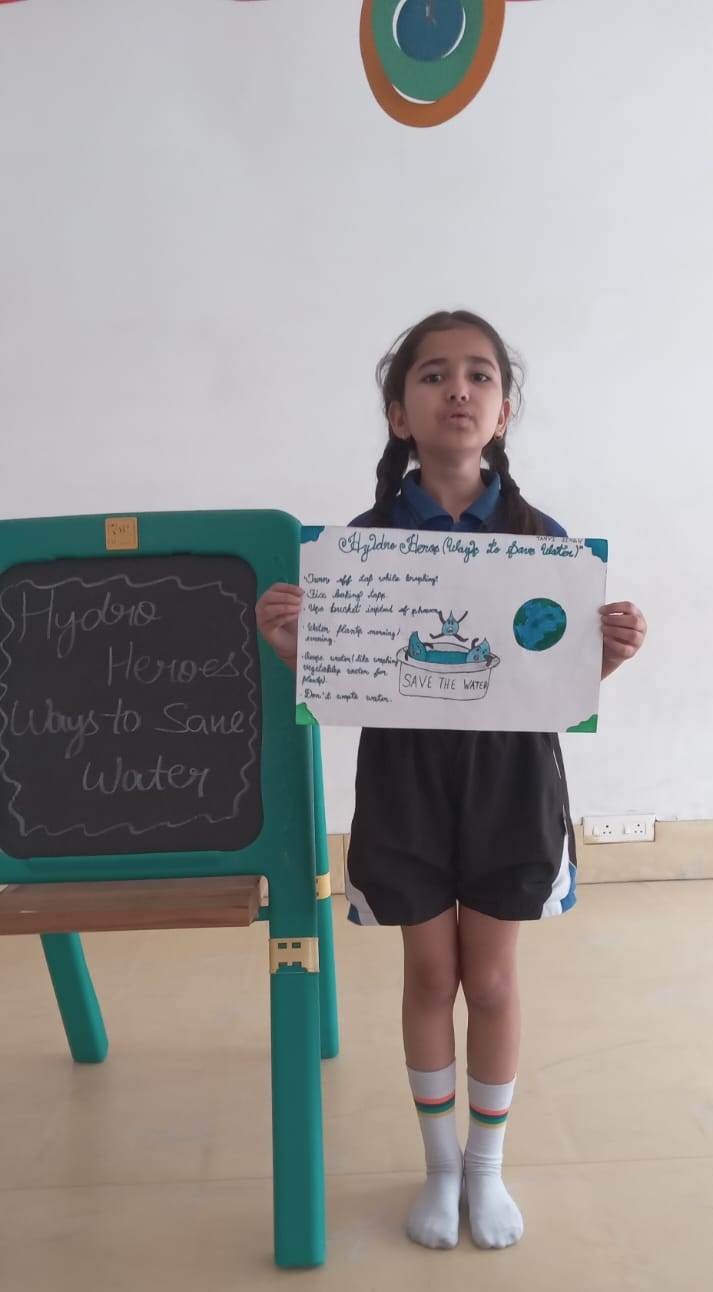 Hydro
Heroes
Ways to Save
Water
"Hydro Heros (Ways to Save Water)"
· Turn off tap while brushing.
· Fix leaking taps.
· Use bucket insted of shower
· Water plants morning/
evening.
· Reuse water (like washing
vegetables water for
plants).
· Don't waste water.
SAVE THE WATER